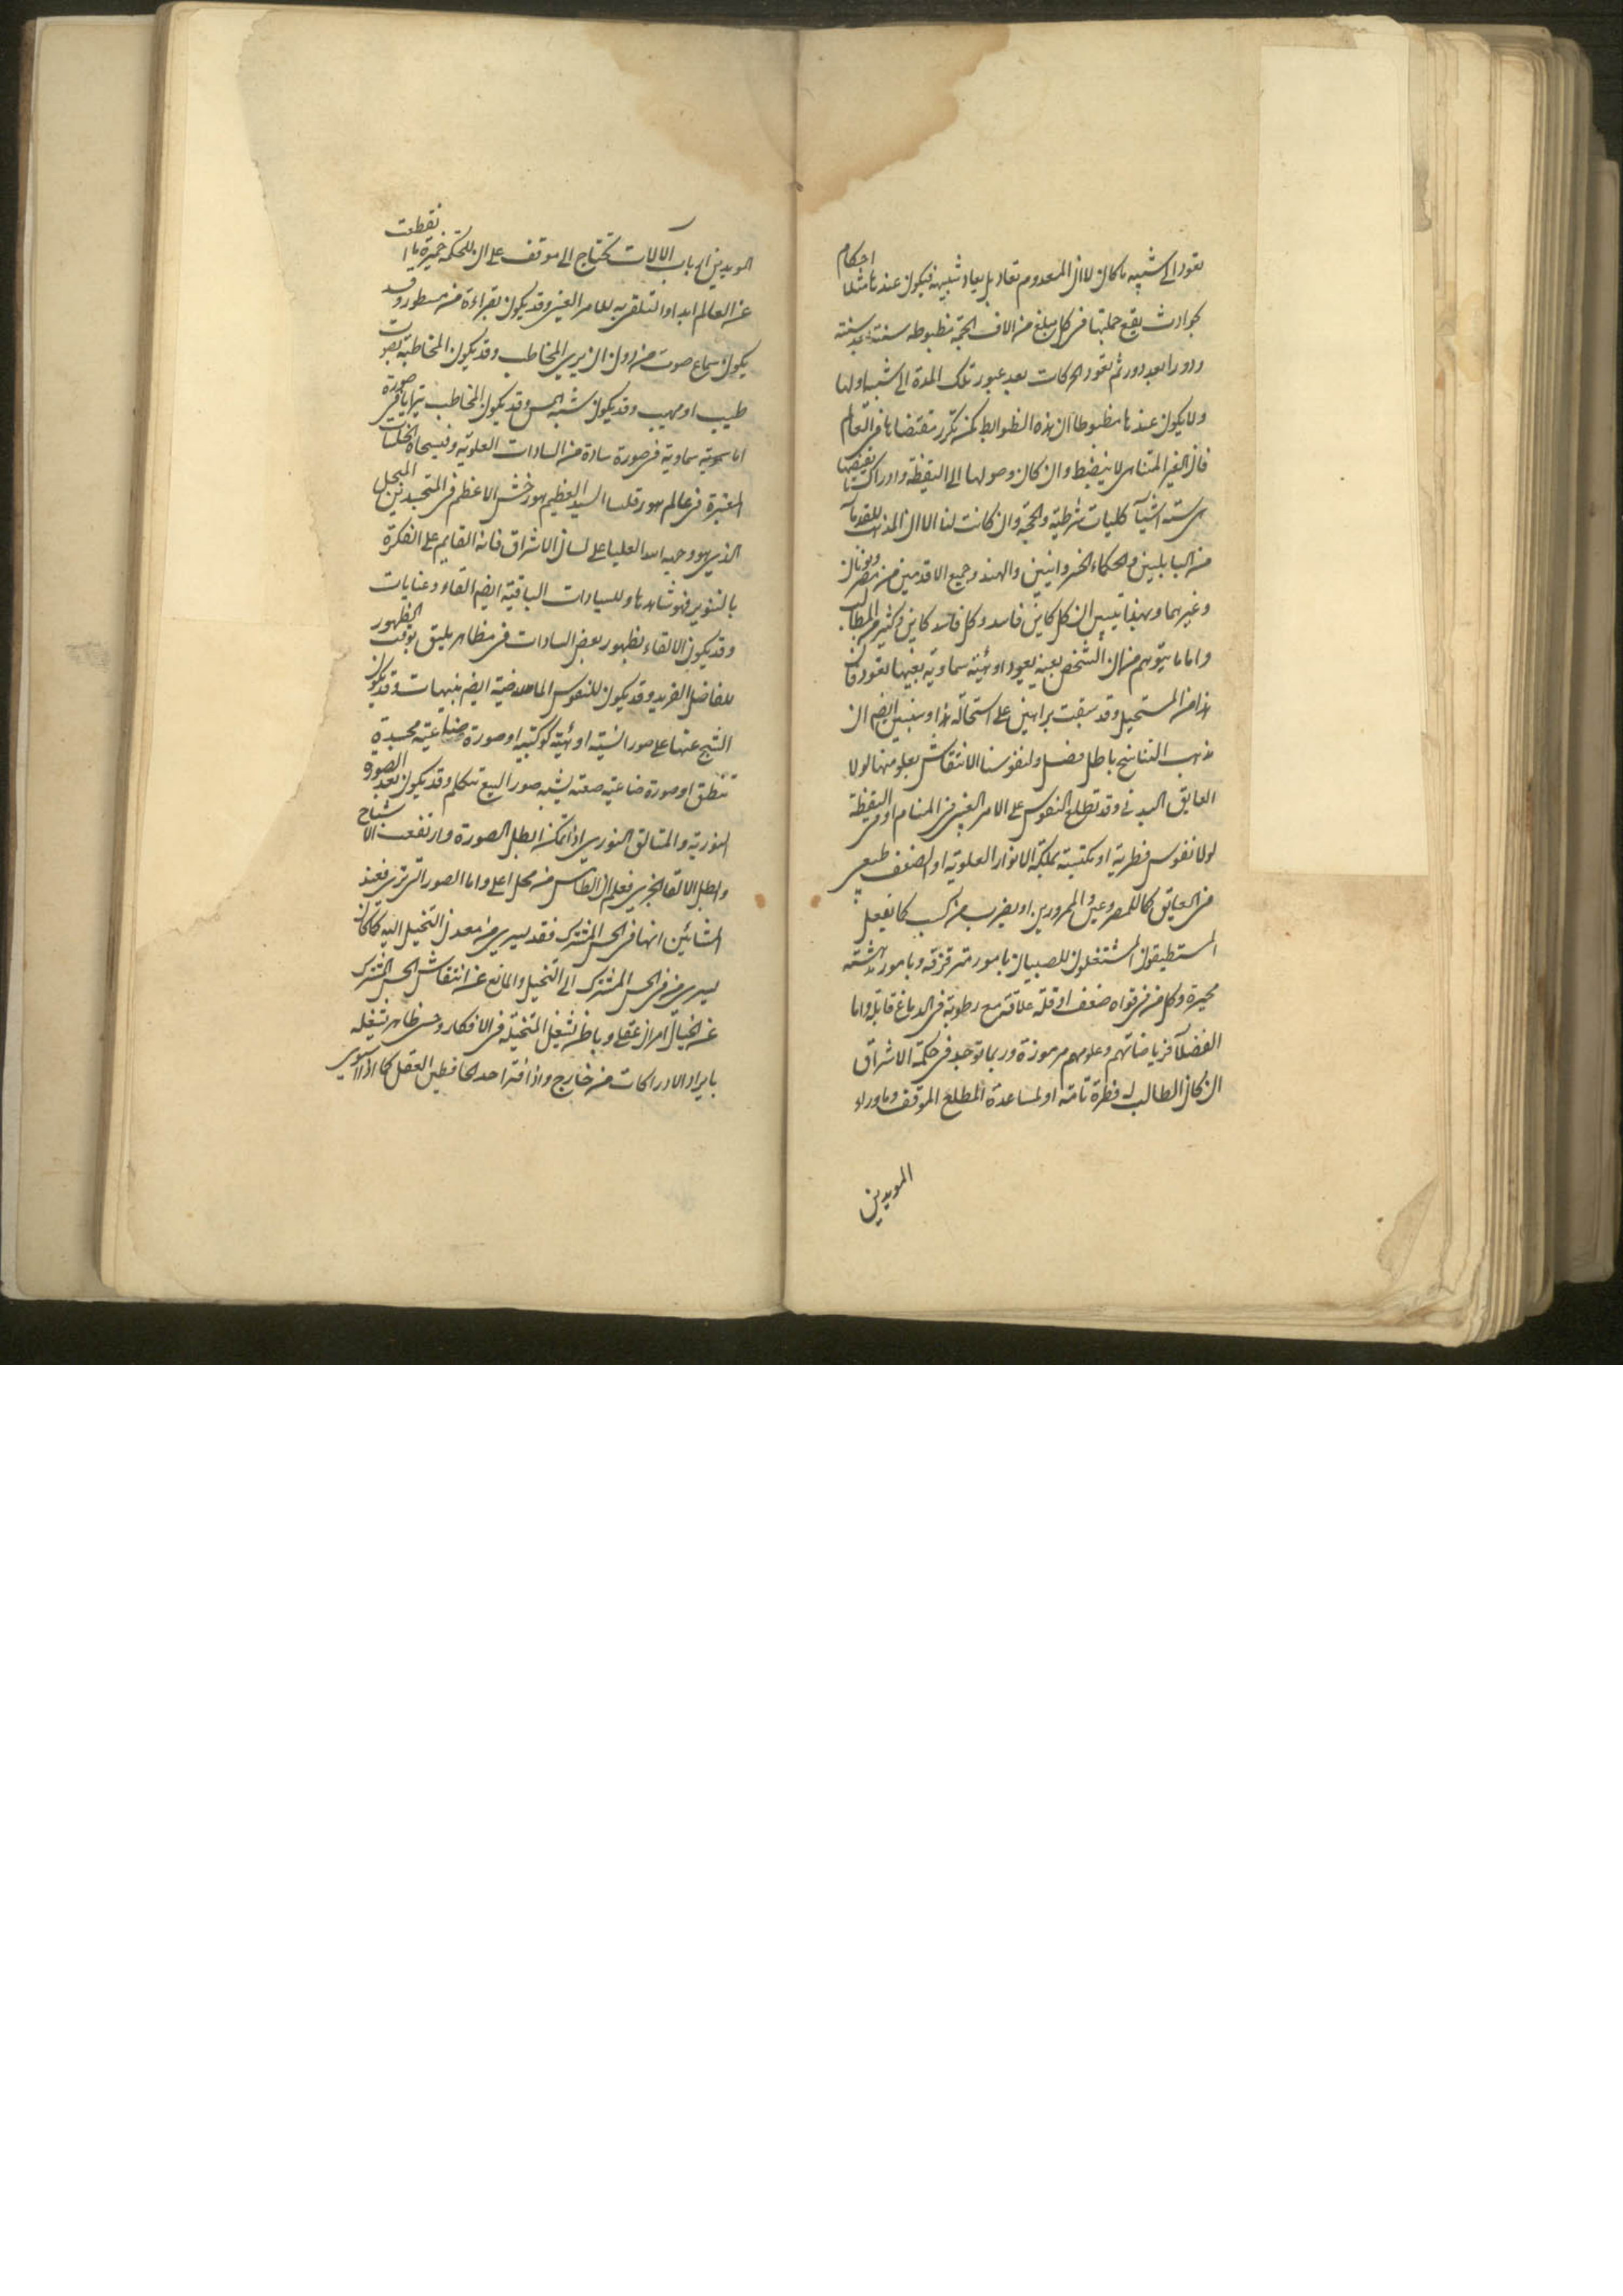 يعود الى شبيه ما كان لا ان المعدوم يعاد بل يعاد شبيهه فيكون عندنا مثلا احكام
بحوادث يقع جملتها فى كل مبلغ من الاف الجمة مظبوطه سنة بعد سنته
ودورا بعد دور ثم تعود الحركات بعد عبور تلك المدة الى شبه اولها
ولا يكون عندنا مظبوطا ان هذه الظوابط كم تكرر مقتضاها فى العالم
فان الغير المتناهى لا ينضبط وان كان وصولها الى اليقظة وادراك
ستة اشيآ كليات شرطية والحجة وان كانت لنا الا ان المذهب للقدمآ
من البابليين والحكماء الخسروانيين والهند وجميع الاقدمين من مصر ويونان
وغيرهما وبهذا تبين ان كل كاين فاسد وكل فاسد كاين فى كثير من المطالب
واما ما يتوهم من ان الشخص بعينه يعود او هيئة سماوية بعينها تعود فان
هذا من المستحيل وقد سبقت براهين على استحالة هذا وسنبين ايضا ان
مذهب التناسخ باطل فصل ولنفوسنا الانتقاش بعلومنها لولا
العايق البدنى وقد تطلع النفوس على الامر الغيبى فى المنام او فى اليقظة
لولا نفوس فطرية او مكتسبة بملكة الانوار العلوية او لضعف طبيعى
فى العايق كما للمصروعين والممرورين او بضرب من كسب كما يفعل
المستطيقون المشتغلون للصبيان بامور مترقرقة وبامور مدهشته
محيرة وكل من فى قواه ضعف او قلة علاقة مع رطوبة فى الدماغ قابلة واما
الفضلآ فرياضاتهم وعلومهم مرموزة وربما توجد فى حكمة الاشراق
ان كان الطالب له فطرة تامة او لمساعدة المطلع الموقف وماوراء
المويدين
المويدين ارباب الالات تحتاج الى موقف على ان للحكمة خميرة ما انقطعت
عن العالم ابدا والتلقى به للامر الغيبى وقد يكون بقراءة من مسطور وقد
يكون بسماع صوت من دون ان يرى المخاطب وقد يكون المخاطبة بصوت
طيب او مهيب وقد يكون شبه الهمس وقد يكون المخاطب يتراياى فى صورة
اما سموية سماوية فى صورة سادة من السادات العلوية وفى سجاة الخلسات
المعتبرة فى عالم هورقليا السيد العظيم هورخش الاعظم فى المتجسدين المبجل
الذى هو وجهة الله العليا على لسان الاشراق فانه القايم على الفكرة
بالتنوير فهو شاهدها وللسيادات الباقية ايضا القاء وعنايات
وقد يكون الالقاء بظهور بعض السادات فى مظاهر يليق بوقت الظهور
للفاضل الفريد وقد يكون للنفوس الماضية ايضا تنبيهات وقد يكون
الشبح عنها على صور انسية او هيئة كوكبية او صورة صناعية مجسدة
تنطق او صورة صناعية صعته يشبه صور البيع تتكلم وقد يكون بعد الصورة
النورية والمتالق النورى اذا تمكن ابطل الصورة وارتفعت الاشباح
وابطل الالقا الجزى فعلم ان الطامس من محل اعلى واما الصور التى ترى فعند
المشائين انها فى الحس المشترك فقد يسرى من معدن التخيل اليه كما كان
يسرى من الحس المشترك الى التخيل والمانع عن انتقاش الحس المشترك
عن الخيال امران عقلى وباطنى يشغل المتخيلة فى الافكار وحس ظاهر يشغله
بايراد الادراكات من خارج واذا فتر احد الحافظين العقل كما اذا استولى